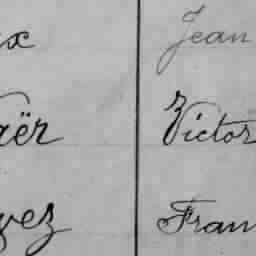 x Jean
aër Victor
vez Fran